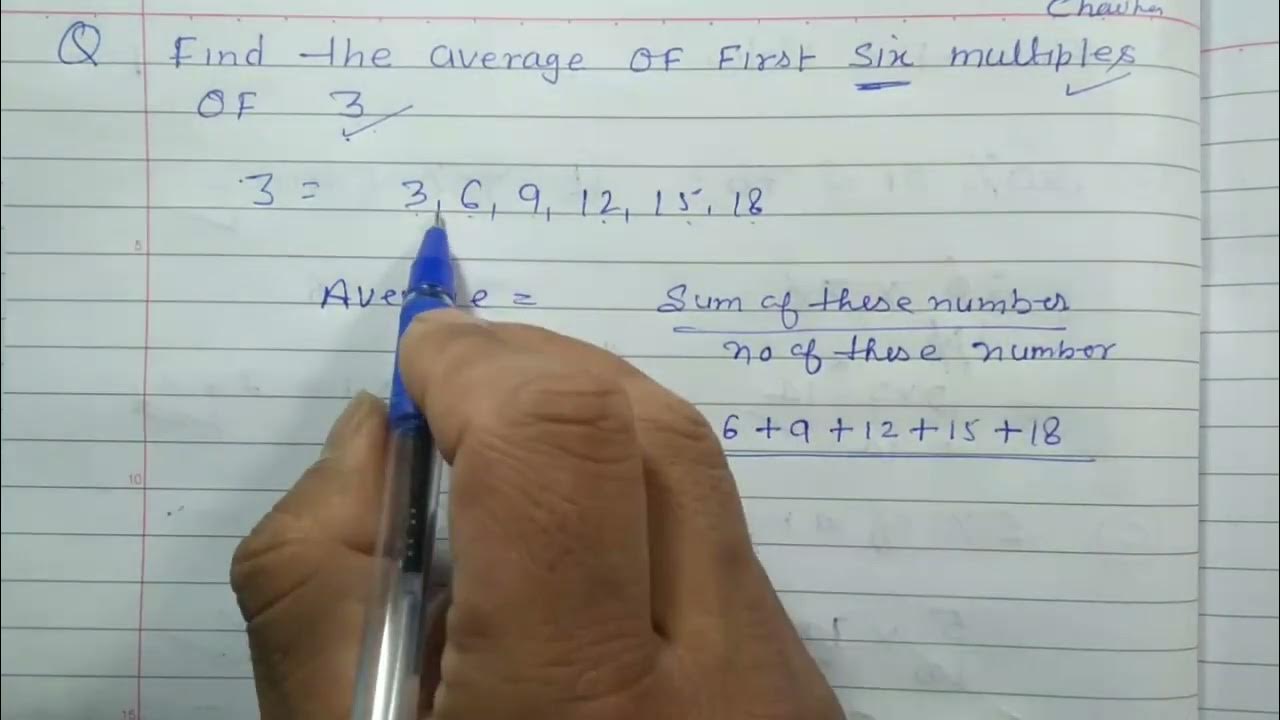 Q Find the average OF First Six multiples
OF 3
3 = 3, 6, 9, 12, 15, 18
= Sum of these number
no of these number
6 + 9 + 12 + 15 + 18
5
10
15